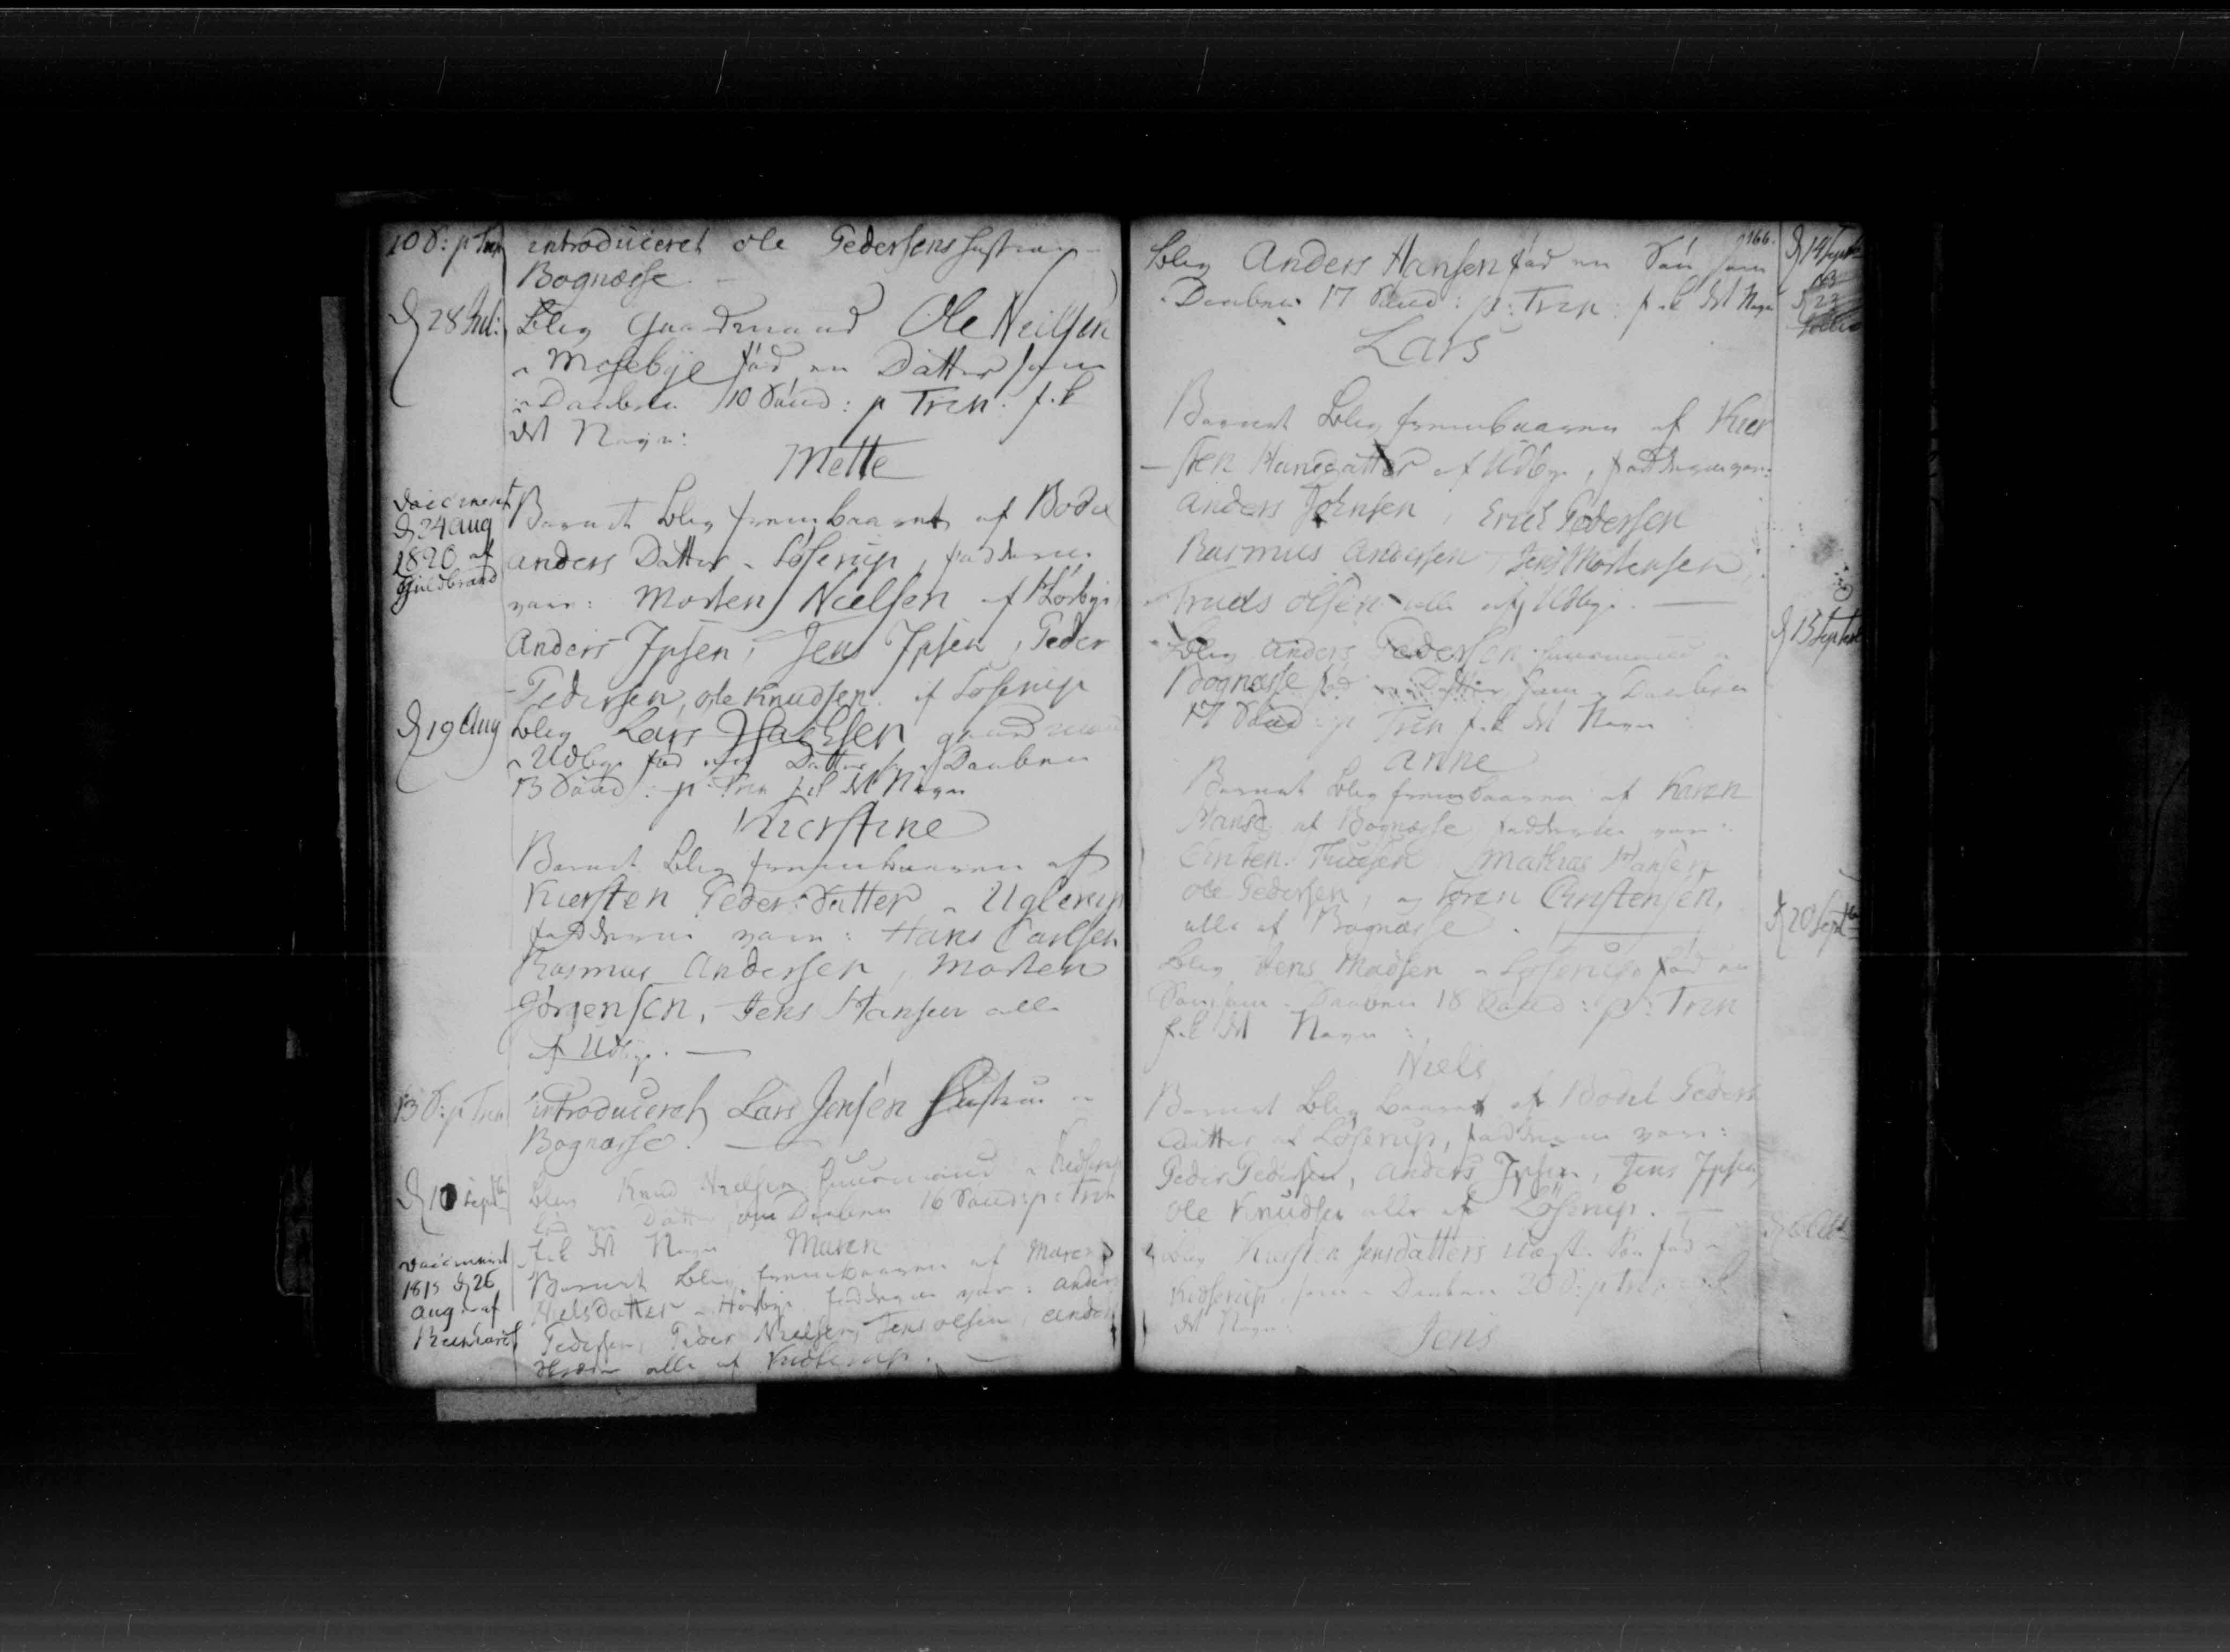 10 S: p Trin introduceret Ole Pedersens Hustru
Bognæsse
D 28 Jul: Blev Gaardmand Ole Neilsen
i Mosebÿe fød en Datter som
i Daaben 10 Sønd: p Trin: fik
det Nafn:
Mette
Vaccineret
D 24 Aug
1820 af
Hildbrand
Barnet blev frembaaret af Bodil
Anders Datter i Løserup, fadderne
vare: Morten Nielsen af Hørbye
Anders Jpsen, Jens Jpsen, Peder
Pedersen, Ole Knudsen af Løserup
D 19 Aug Blev Lars Gaardmand
i Udbye fød en Datter i Daaben
13 Sønd: p: Trin fik det Nafn
Kierstine
Barnet blev frembaaren af
Kiersten Peders Datter i Uglerup
fadderne vare: Hans Carlsen
Rasmus Andersen, Morten
Jørgensen, Jens Hansen alle
af Udbye.
13 S: p Trin introduceret Lars Jensen Hustru i
Bognæsse.
D 10 Sept Blev Knud Nielsen Huusmand i
fød en Datter, som i Daaben 16 Sønd: p: Trin
fik det Nafn Maren
Vaccineret
1819 D 26
Aug. af
Barnet blev frembaaren af Maren
Nielsdatter i Hørbye fadderne vare: Anders
Pedersen, Peder Nielsen, Jens Olsen, Anders
alle af Kidserup.
166.
Blev Anders Hansen fød en Søn som D 14 Septb
i Daaben 17 Sønd: p: Trin: fik det Nafn
Lars
Barnet blev frembaaren af Kier
sten Hansdatter af Udbye, fadderne vare:
Anders Johnsen, Erich Pedersen
Rasmus Andersen, Jens Mortensen,
Truels Olsen alle af Udbye.
Blev Anders Pedersen Huusmand i D 15 Septemb
Bognæsse fød en Datter som i Daaben
17 Sønd: p Trin fik det Nafn
Anne
Barnet blev frembaaren af Karen
Hansd: af Bognæsse, fadderne vare:
Mathias Hansen
Ole Pedersen, og Søren Christensen,
alle af Bognæsse.
Blev Jens Madsen i Løserup fød en D 20 Septb
Søn som i Daaben 18 Sønd: p: Trin
fik det Nafn:
Niels
Barnet blev baaret af Bodil Peders
datter af Løserup, fadderne vare:
Peder Pedersen, Anders Jpsen, Jens Jpsen,
Ole Knudsen alle af Løserup.
Blev Kiersten Jensdatters uægt. Søn fød i
Kidserup som i Daaben 20 S: p Trin fik
det Nafn:
Jens